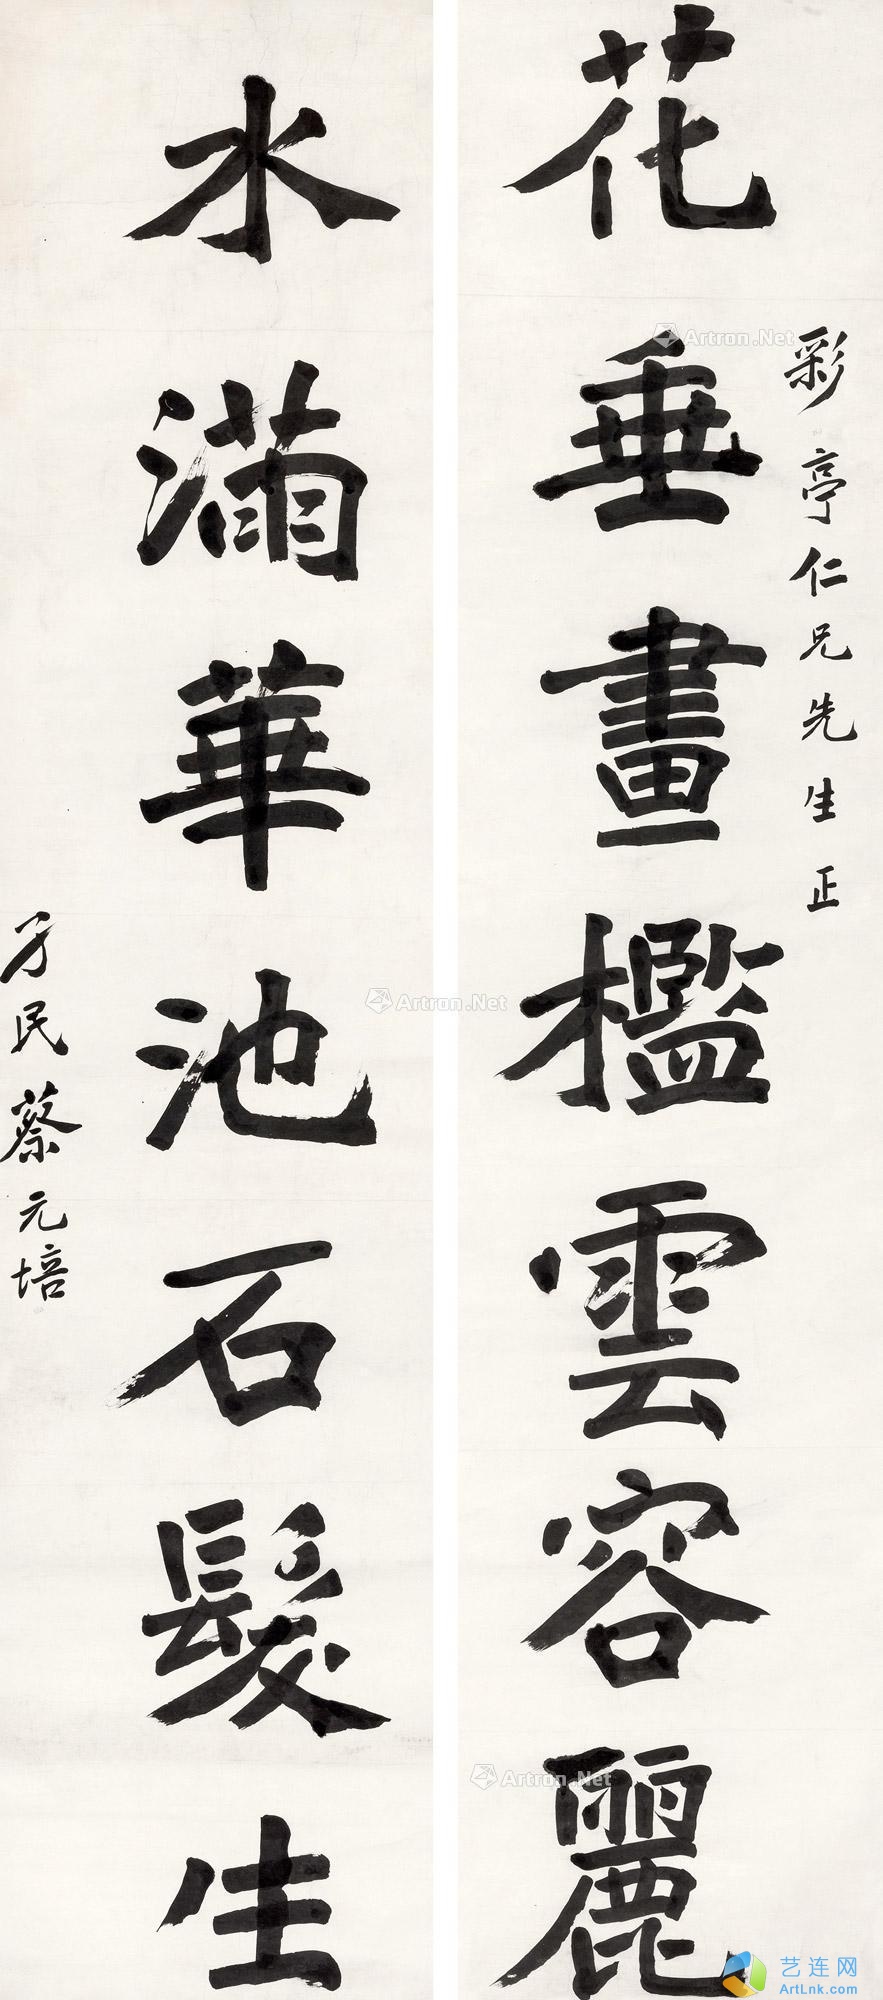 花垂畫檻雲容麗
彩亭仁兄先生正
水滿華池石髮生
孑民蔡元培
Artron.Net
Artron.Net
Artron.Net
艺连网
ArtLnk.com